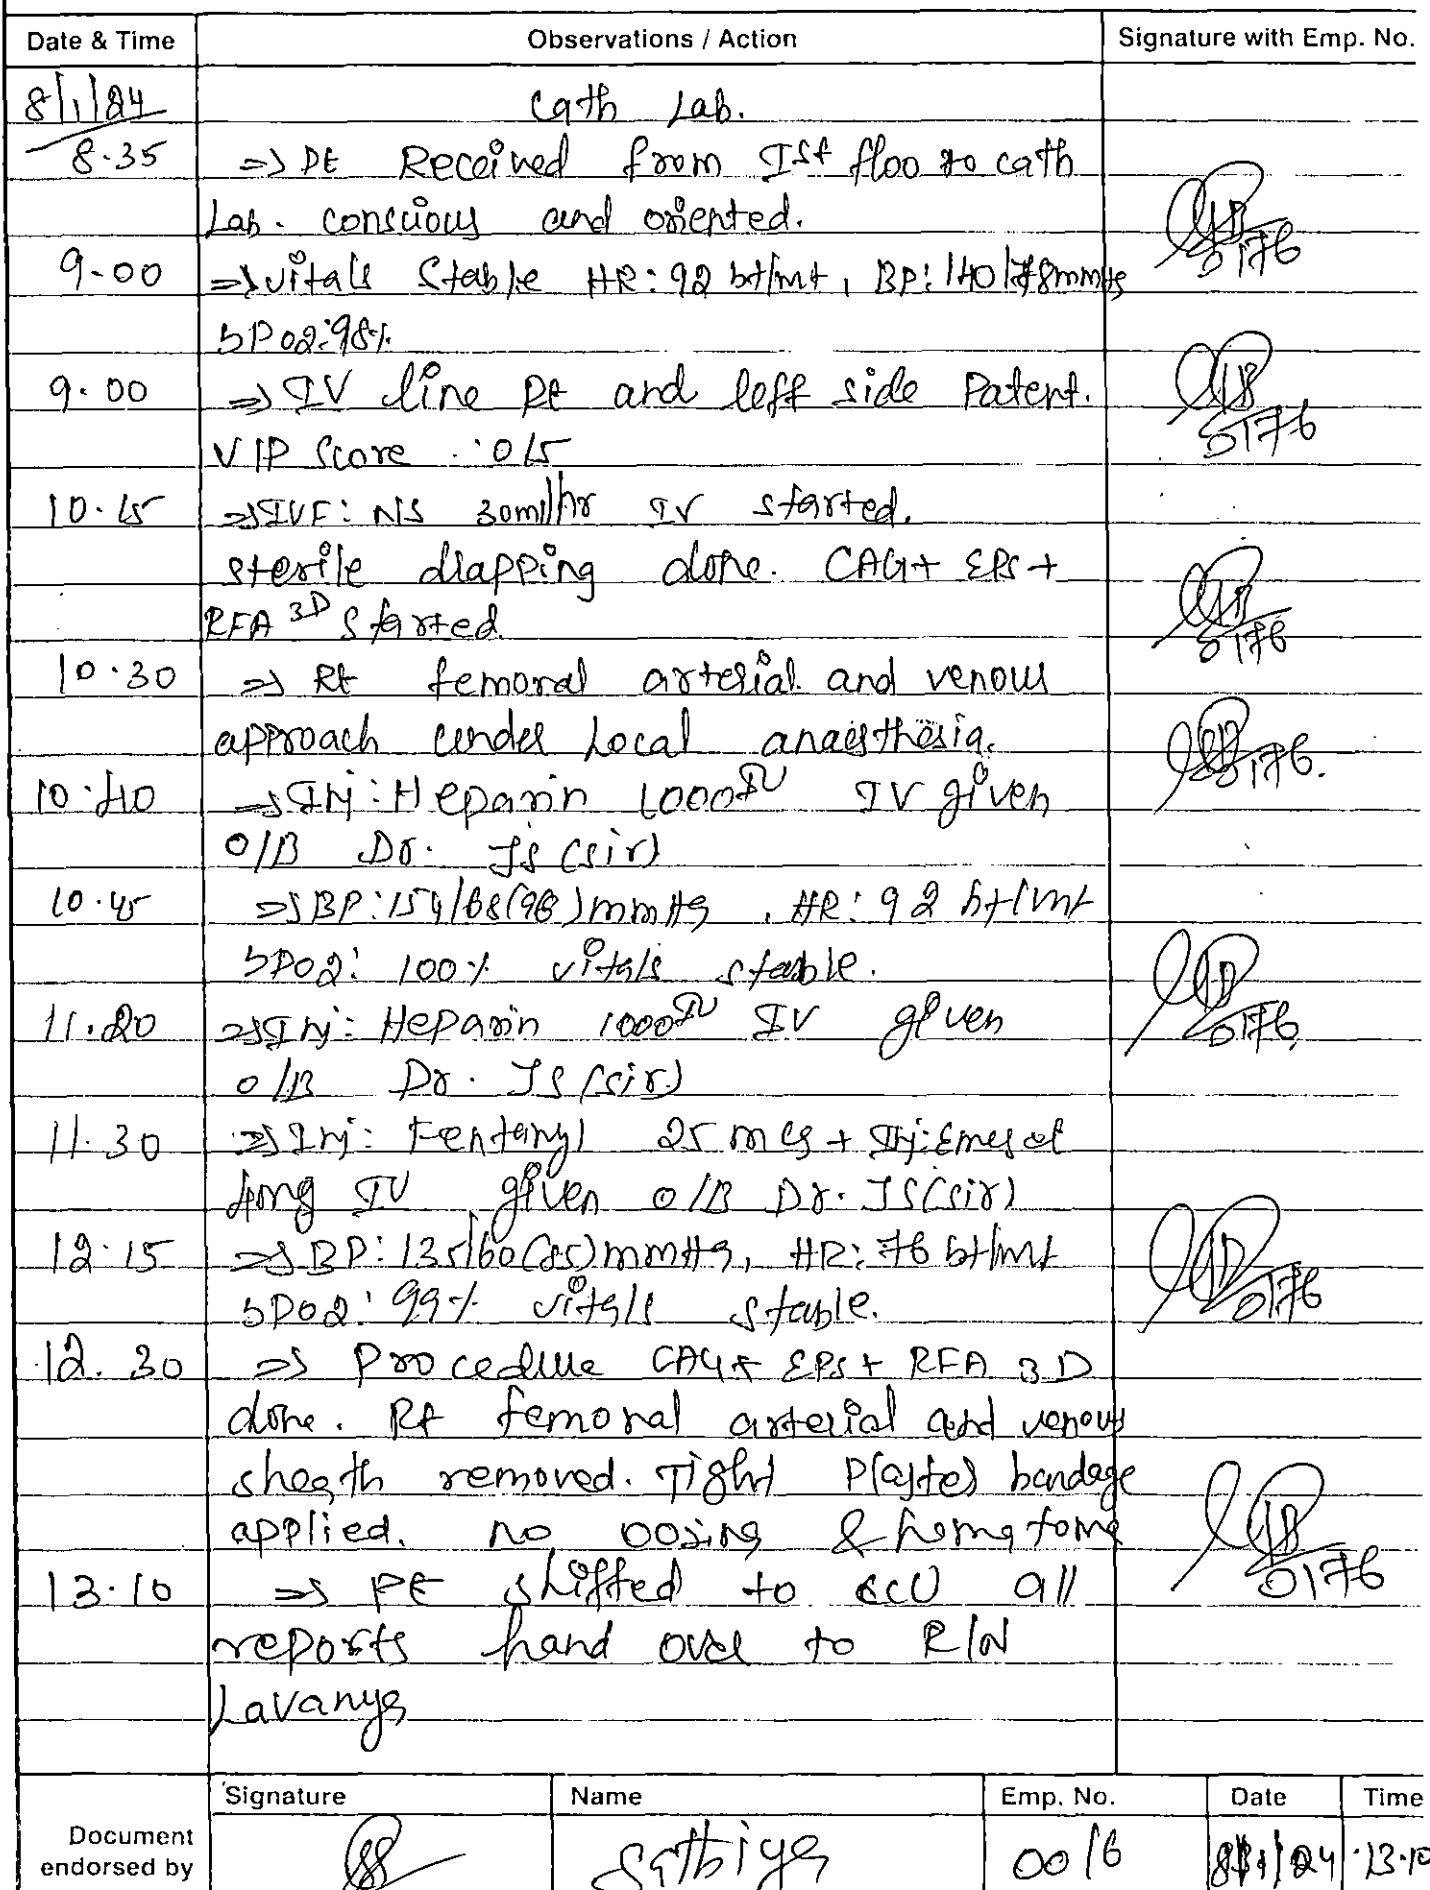 Date & Time Observations / Action Signature with Emp. No.
8/1/24 Cath Lab.
8.35 => Pt Received from Ist floo to cath
Lab. conscious and oriented.
0176
9.00 => vitals Stable HR: 92 bt/mt, BP: 140/78mmHg
SPO2:98%
9.00 => IV line Rt and left side Patent.
0176
VIP Score : 0/5
10.15 => IVF: NS 30ml/hr IV started.
sterile drapping done. CAG+ EPS+
RFA 3D Started
0176
10.30 => Rt femoral arterial and venous
approach under Local anaesthesia.
0176.
10.40 => Inj: Heparin 1000IU IV given
O/B Dr. JS (sir)
10.45 => BP: 154/68(98)mmHg, HR: 92 bt/mt
SPO2: 100% vitals stable.
11.20 => Inj: Heparin 1000IU IV given
0176
O/B Dr. JS (sir)
11.30 => Inj: Fentanyl 25 mcg + Inj: Emeset
4mg IV given O/B Dr. JS(sir)
12.15 => BP: 135/60(85)mmHg, HR: 76 bt/mt
SPO2: 99% vitals stable.
0176
12.30 => Procedure CAG+ EPS+ RFA 3D
done. Rt femoral arterial and venous
sheath removed. Tight Plaster bandage
applied. no oozing & hematoma
0176
13.10 => Pt shifted to CCU all
reports hand over to R/N
Lavanya
Signature Name Emp. No. Date Time
Document
endorsed by Sathiya 0016 8/1/24 13.10